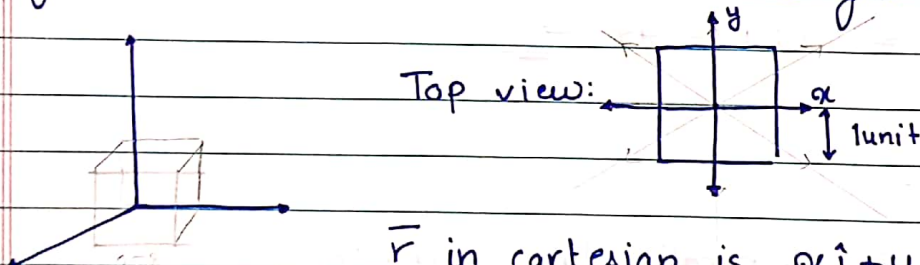 y
Top view:
x
1unit
r̅ in cartesian is xî +